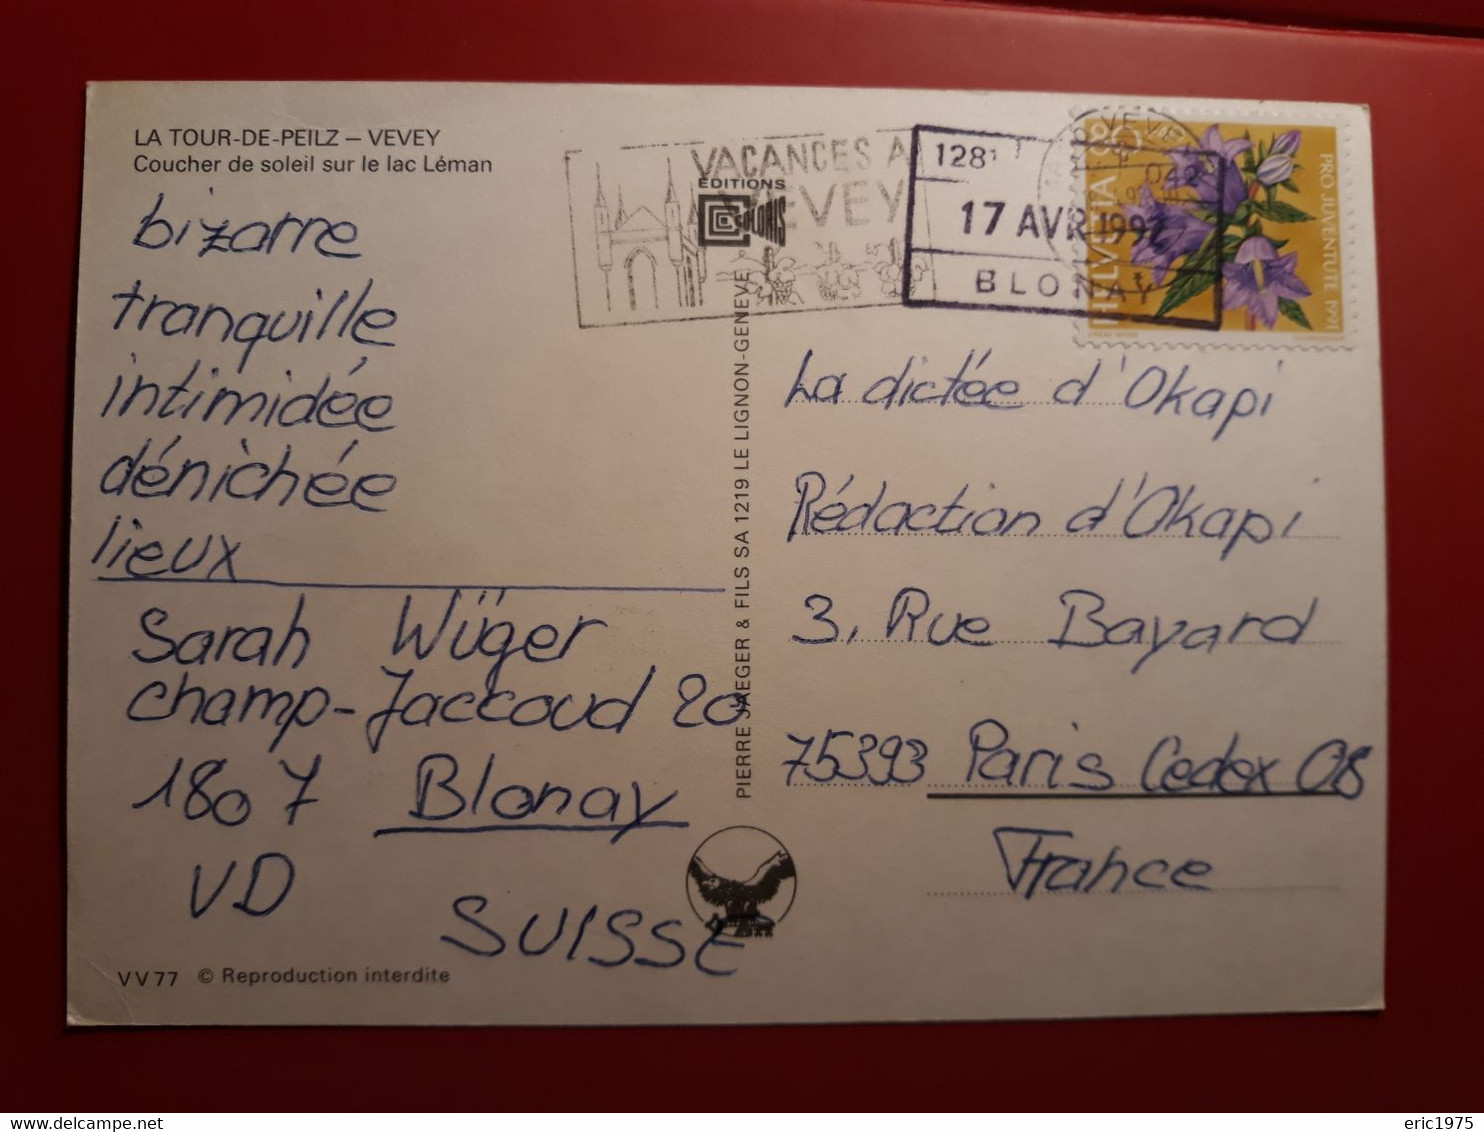 LA TOUR-DE-PEILZ – VEVEY
Coucher de soleil sur le lac Léman
bizarre
tranquille
intimidée
dénichée
lieux
Sarah Wüger
Champ-Jaccoud 20
1807 Blonay
VD
SUISSE
VV77 © Reproduction interdite
VACANCES A
VEVEY
ÉDITIONS
COLORIS
PIERRE JAEGER & FILS SA 1219 LE LIGNON-GENEVE
17 AVR 1992
BLONAY
HELVETIA 80
PRO JUVENTUTE 1991
La dictée d'Okapi
Rédaction d'Okapi
3, Rue Bayard
75393 Paris Cedex 08
France
eric1975